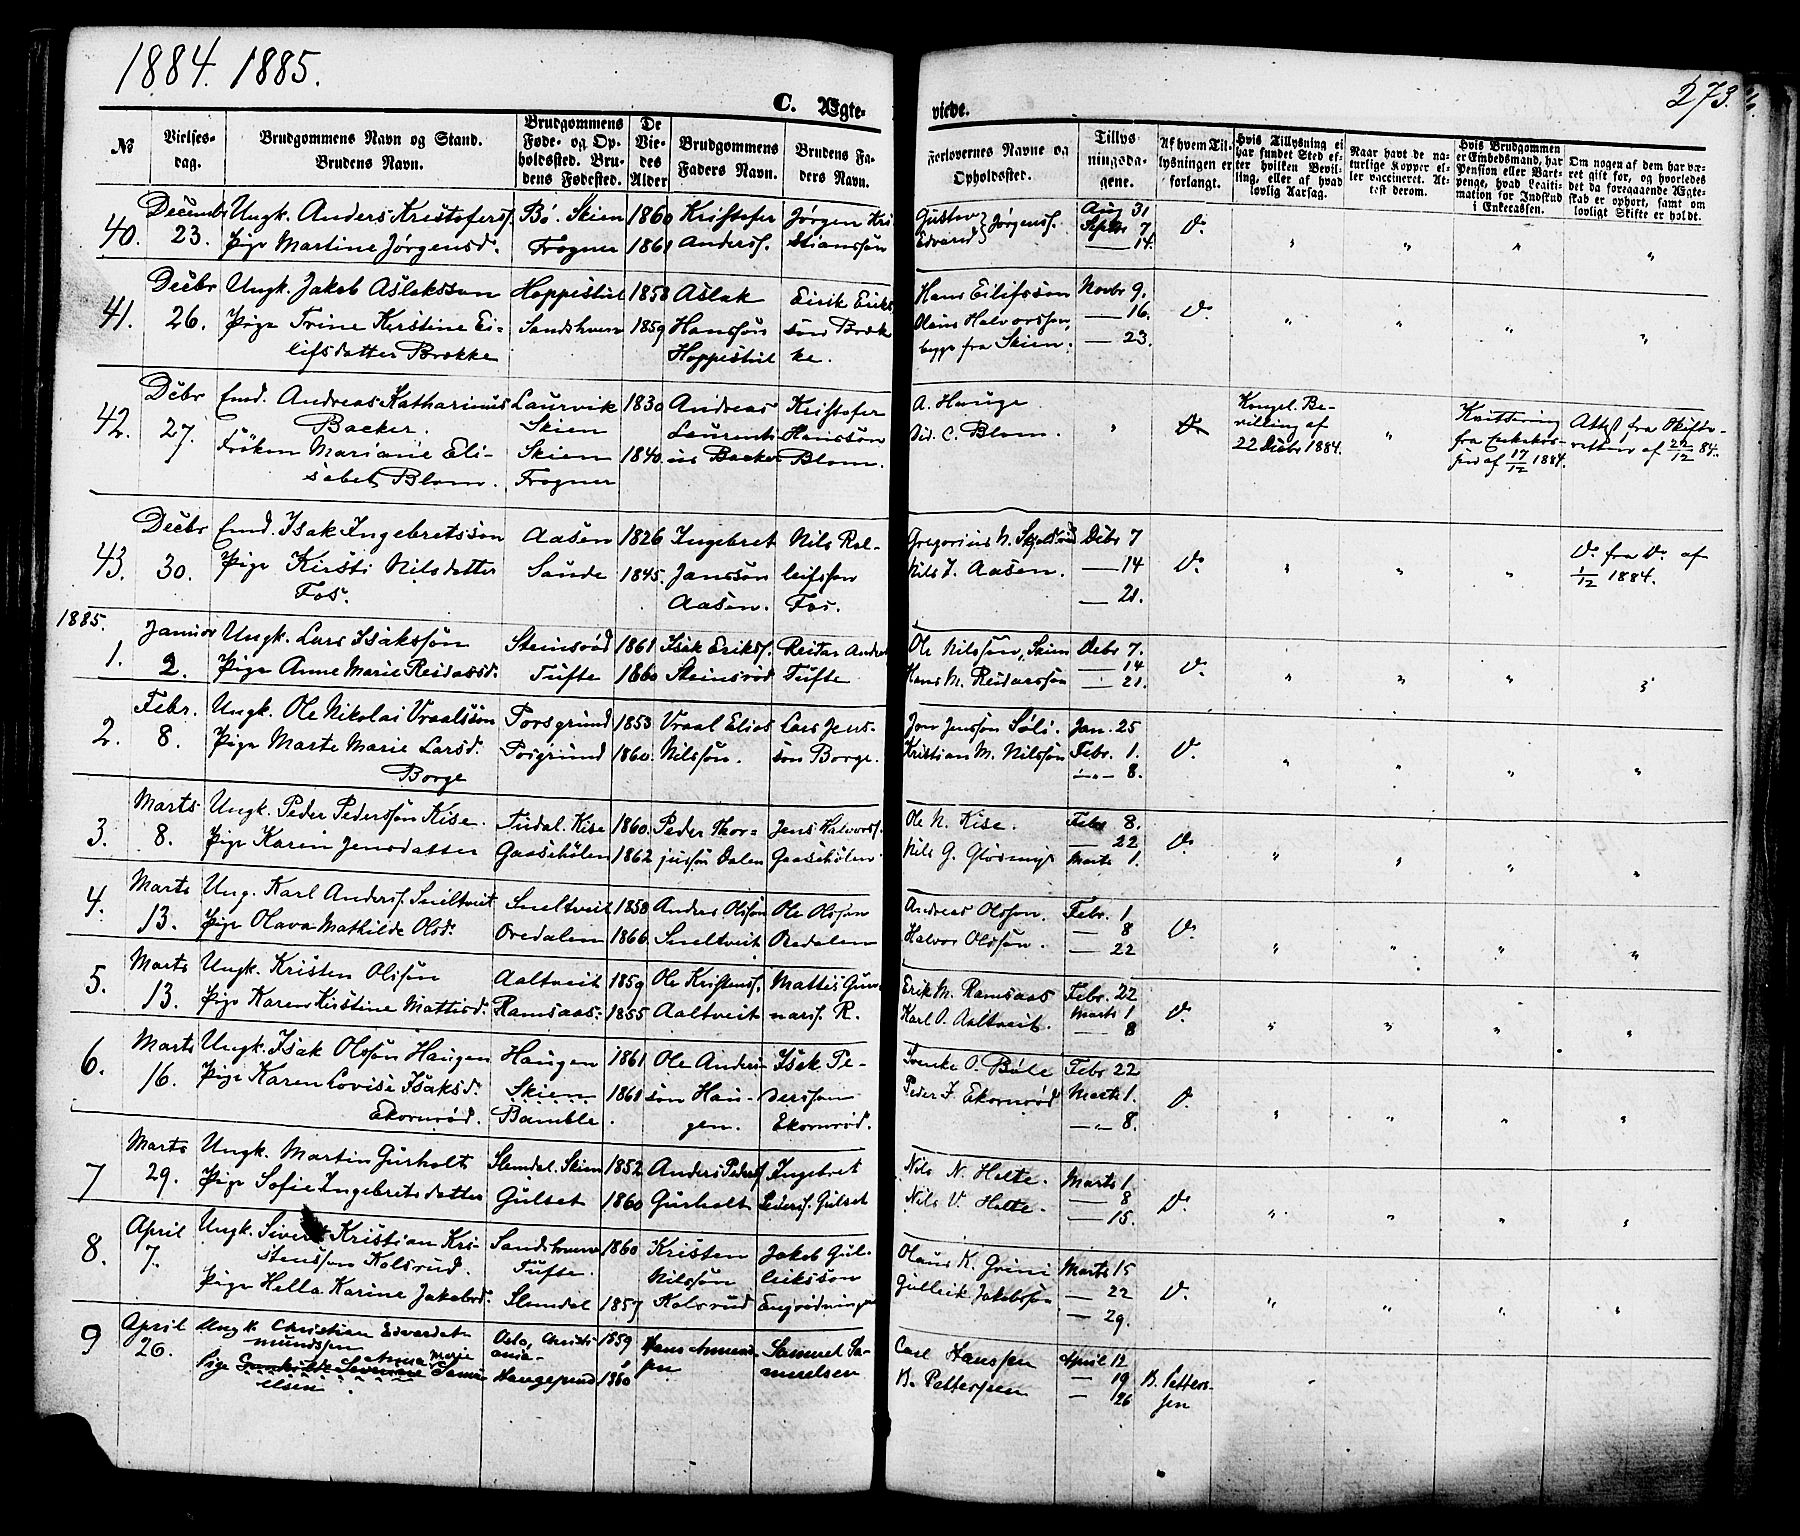 1884. 1885.
273.
C. Ægte-
viede.
№
Vielses-
dag.
Brudgommens Navn og Stand.
Brudens Navn.
Brudgommens
Føde- og Op-
holdssted. Bru-
dens Fødested.
De
Vie-
des
Alder
Brudgommens
Faders Navn.
Brudens Fa-
ders Navn.
Forlovernes Navne og
Opholdssted.
Tillys
ningsda-
gene.
Af hvem Til-
lysningen er
forlangt.
Hvis Tillysning ei
har fundet Sted ef-
ter hvilken Bevil-
ling, eller af hvad
lovlig Aarsag.
Naar havt de na-
turlige Kopper el-
ler vaccineret. At-
test derom.
Hvis Brudgommen
er Embedsmand, har
Pension eller Vart-
penge, hvad Legiti-
mation for Indskud
i Enkecassen.
Om nogen af dem har væ-
ret gift før, og hvorledes
det da foregaaende Ægte-
skab er ophørt, samt om
lovligt Skifte er holdt.
40.
Decembr
23.
Ungk. Anders Kristofers.
Pige Martine Jørgensd.
Bö. Skien
Frogner
1860
1861
Kristofer
Anders.
Jørgen Kri
stianssøn
Gustav
Edvard } Jørgens.
Aug 31
Septbr 7
— 14.
Do.
" " " "
41.
Decbr
26.
Ungk. Jakob Aslakssøn
Pige Trine Kirstine Ei-
lifsdatter Brække
Hoppestul
Sandshverv
1858
1859
Aslak
Hanssøn
Hoppestul
Eirik Eriks
søn Bræk
ke.
Hans Eilifssøn
Olaus Halvorssøn,
begge fra Skien.
Novbr 9.
— 16.
— 23.
Do.
" " " "
42.
Decbr
27.
Emd. Andreas Katharinus
Backer.
Frøken Mariane Eli-
sabet Blom.
Laurvik
Skien
Skien
Frogner
1830
1840.
Andreas
Laurenti
us Backer
Kristofer
Hanssøn
Blom.
A. Hauge.
Did. C. Blom.
"
Do.
Kongel. Be-
villing af
22 Decbr 1884.
"
Kvittering
fra Enkekas-
sen af 17/12 1884.
Attest fra Skifte-
retten af 22/12 84.
43.
Decbr
30.
Emd. Isak Ingebretssøn
Pige Kirsti Nilsdatter
Fos.
Aasen
Saude
1826
1845.
Ingebret
Janssøn
Aasen.
Nils Rol-
leifssøn
Fos.
Gregorius N. Skjelsvik
Nils I. Aasen.
Debr 7
— 14
— 21.
Do.
" " "
Do. fra Do. af
1/12 1884.
1885.
1.
Januar
2.
Ungk. Lars Isakssøn
Pige Anne Marie Reidarsd.
Steinsrød
Tufte
1861
1860
Isak Eriks.
Steinsrød
Reidar Anders
Tufte
Ole Nilssøn, Skien
Hans M. Reidarssøn
Debr 7.
— 14
— 21.
Do.
" " " "
2.
Febr.
8.
Ungk. Ole Nikolai Vraalssøn
Pige Marte Marie Larsd.
Borge
Porsgrund
Porsgrund
1853
1860.
Vraal Elias
Nilssøn.
Lars Jens-
søn Borge.
Jon Jenssøn Søli.
Kristian M. Nilssøn
Jan. 25
Febr. 1.
— 8.
Do.
" " " "
3.
Marts
8.
Ungk. Peder Pederssøn Kise.
Pige Karen Jensdatter
Tudal. Kise
Gaaseholen
1860.
1862
Peder Thor-
jussøn Dalen
Jens Halvors.
Gaaseholen
Ole N. Kise.
Nils G. Glosmyr
Febr 8.
— 22
Marts 1.
Do.
" " " "
4.
Marts
13.
Ung. Karl Anders. Sneltveit
Pige Olava Mathilde Olsd.
Sneltveit
Oredalen
1858
1866.
Anders Olssøn
Sneltveit
Ole Olssøn
Oredalen
Andreas Olssøn.
Halvor Olssøn.
Febr. 1
— 8
— 22
Do.
" " " "
5.
Marts
13.
Ungk. Kristen Olssøn
Pige Karen Kirstine Mattisd.
Aaltveit
Ramsaas.
1859
1855
Ole Kristens.
Aaltveit
Mattis Gun-
nars. R.
Erik M. Ramsaas
Karl O. Aaltveit.
Febr. 22
Marts 1
— 8
Do.
" " " "
6.
Marts
16.
Ungk. Isak Olssøn Haugen
Pige Karen Lovise Isaksd.
Ekornrød.
Haugen
Skien
Bamble.
1861
1861
Ole Anders-
søn Hau-
gen.
Isak Pe-
derssøn
Ekornrød.
Svenke O. Bøle
Peder I. Ekornrød
Febr 22
Marts 1.
— 8.
Do.
" " " "
7
Marts
29.
Ungk. Martin Gurholt
Pige Sofie Ingebretsdatter
Slemdal. Skien
Gulset
1852
1860
Anders Peders.
Gurholt
Ingebret
Peders. Gulset
Nils N. Holte.
Nils V. Holte.
Marts 1.
— 8
— 15.
Do.
" " " "
8.
April
7.
Ungk. Sivert Kristian Kri-
stenssøn Kolsrud.
Pige Hella Karine Jakobsd.
Sandshverv
Tufte.
Slemdal
1860
1857
Kristen
Nilssøn
Kolsrud
Jakob Gul-
leikssøn
Olaus K. Grini
Gulleik Jakobssøn
Marts 15
— 22
— 29.
Do.
" " " "
9
April
26.
Ungk. Christian Edvard
mundsen
Anna Marie
Pige Samu-
elsen
Oslo, Christi-
ania
Haugesund
1859
1860
Hans Amund
sen
Samuel Sa-
muelsen
Carl Hanssen
B. Pettersen
April 12
— 19
— 26
B. Petter-
sen